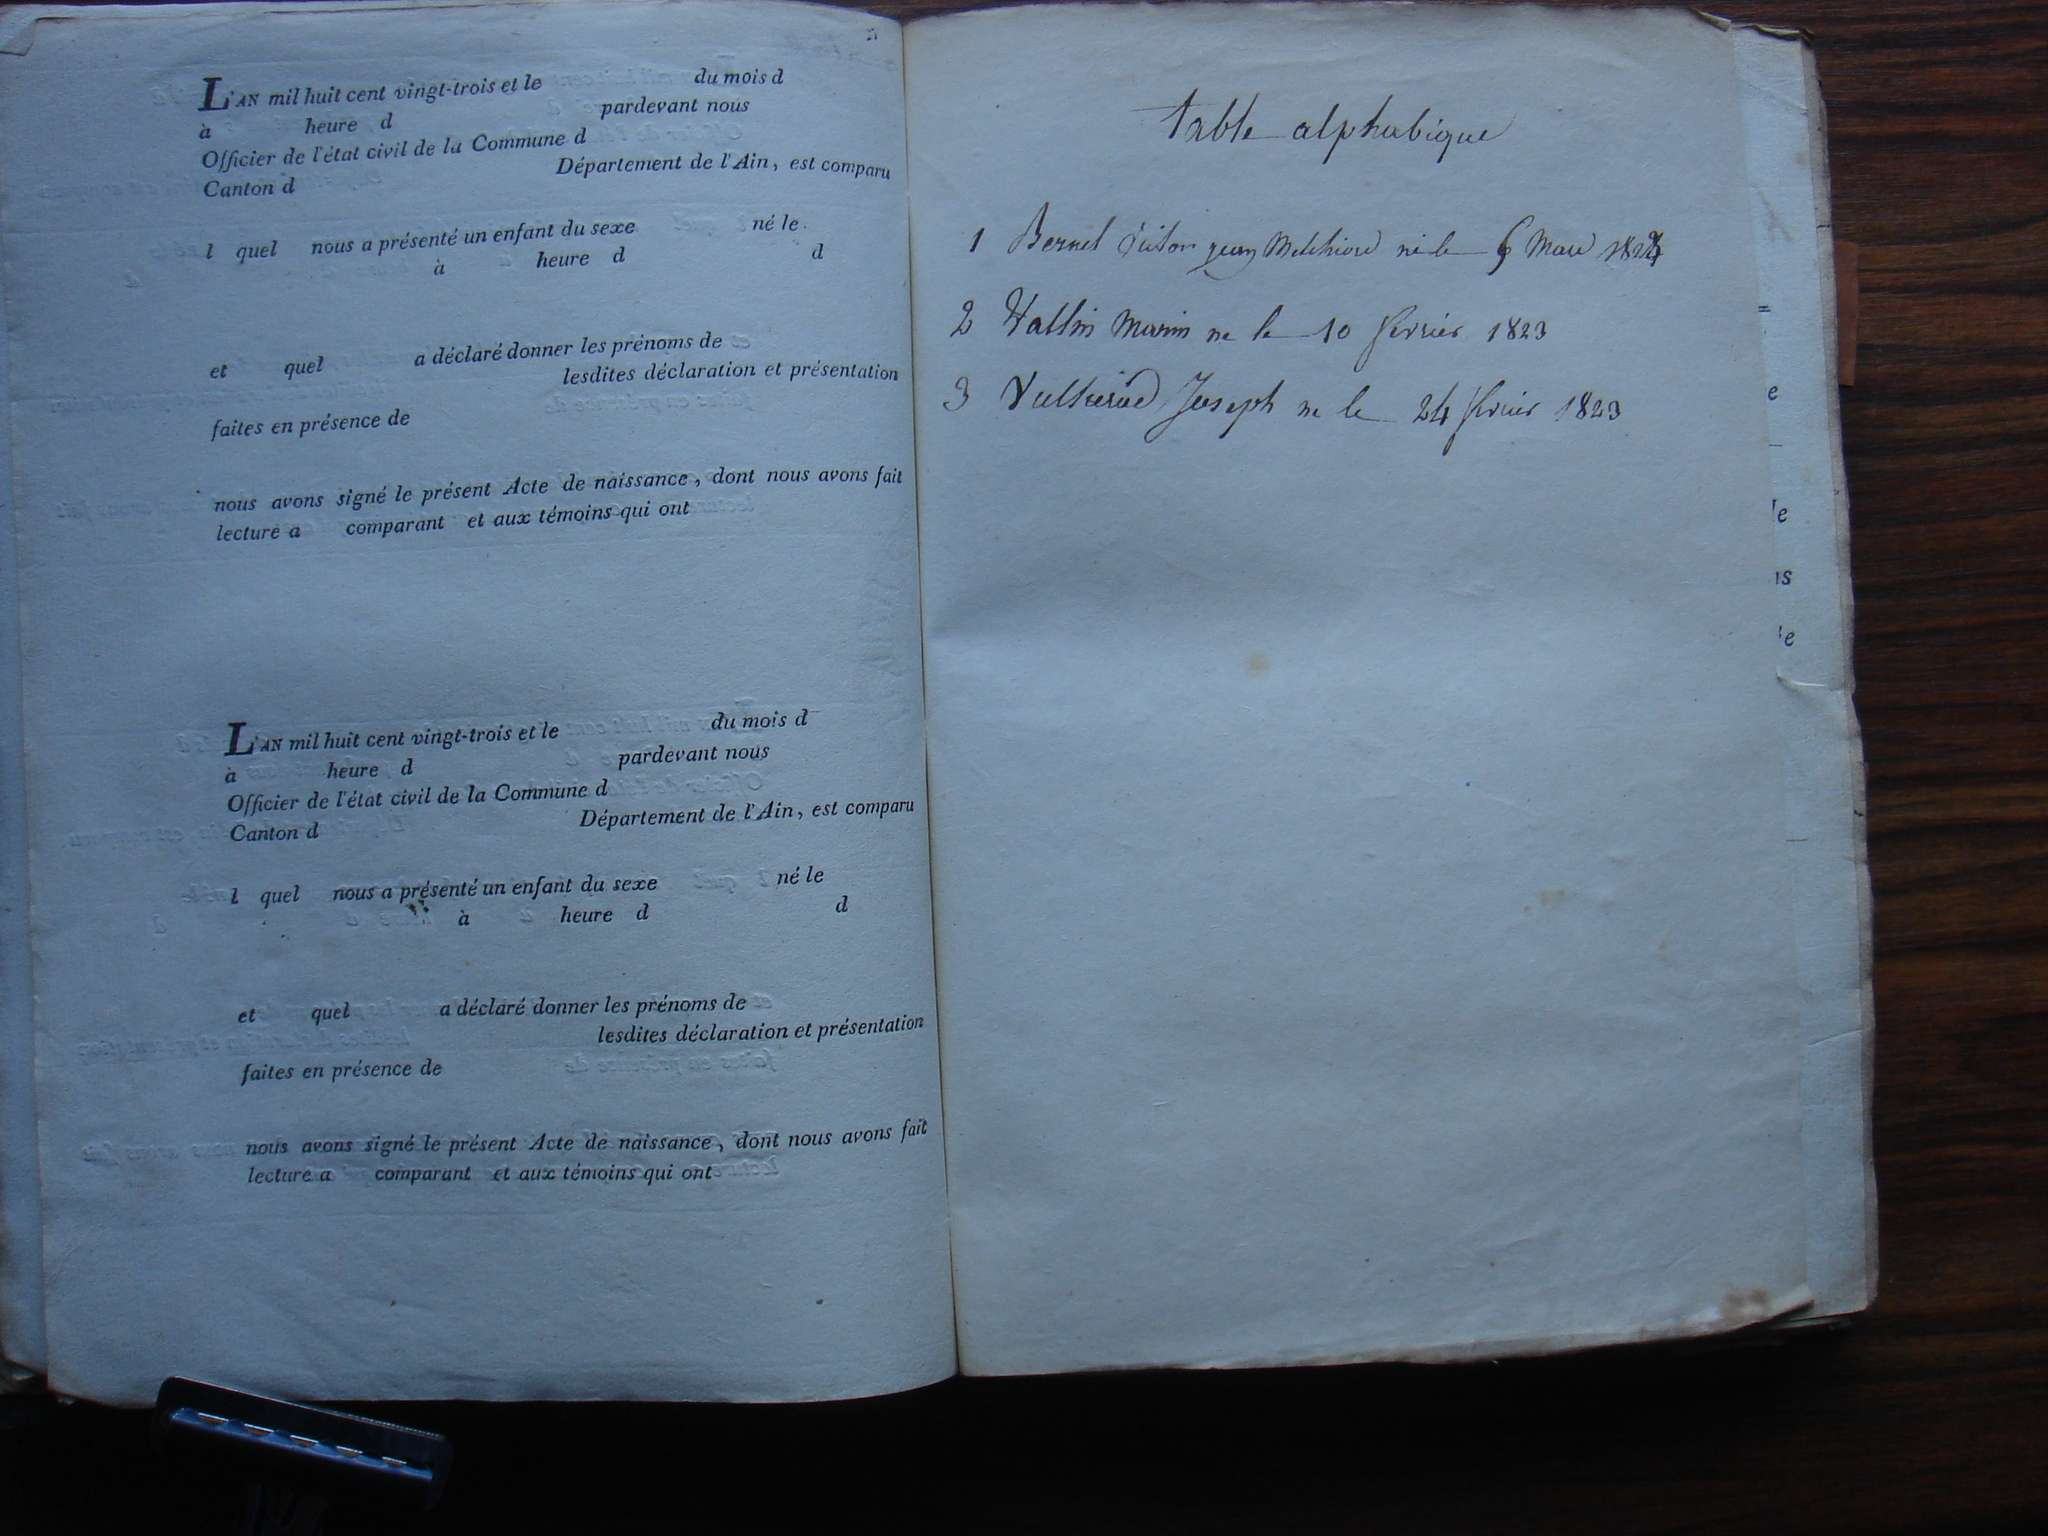 L'AN mil huit cent vingt-trois et le du mois d
à heure d pardevant nous
Officier de l'état civil de la Commune d
Canton d Département de l'Ain, est comparu
l quel nous a présenté un enfant du sexe né le
à heure d d
et quel a déclaré donner les prénoms de
lesdites déclaration et présentation
faites en présence de
nous avons signé le présent Acte de naissance, dont nous avons fait
lecture a comparant et aux témoins qui ont
L'AN mil huit cent vingt-trois et le du mois d
à heure d pardevant nous
Officier de l'état civil de la Commune d
Canton d Département de l'Ain, est comparu
l quel nous a présenté un enfant du sexe né le
à heure d d
et quel a déclaré donner les prénoms de
lesdites déclaration et présentation
faites en présence de
nous avons signé le présent Acte de naissance, dont nous avons fait
lecture a comparant et aux témoins qui ont
table alphabique
1 Bernet jean né le 6 Mars
2 Vallin Marin ne le 10 fevrier 1823
3 Joseph ne le 24 fevrier 1823